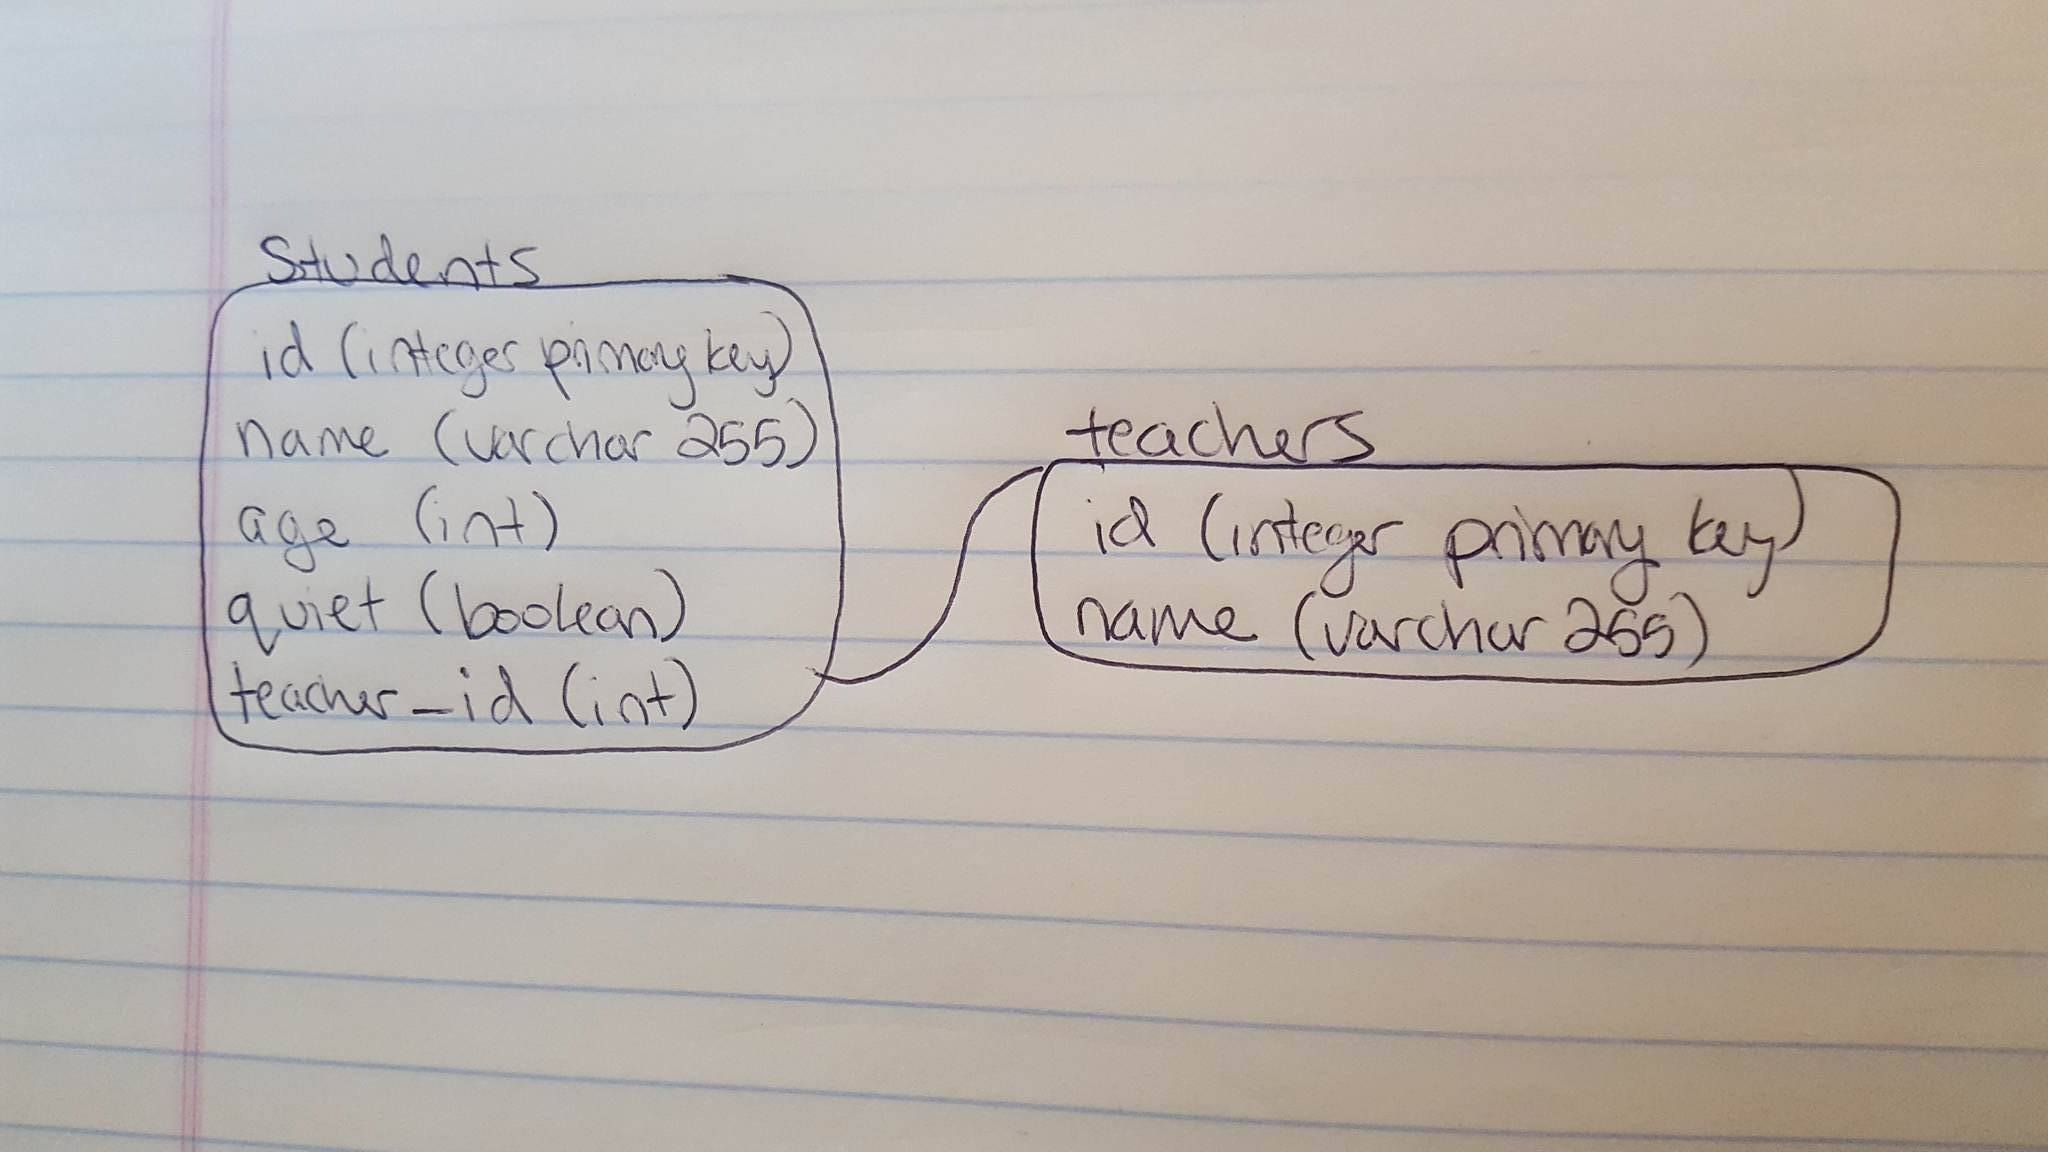 Students
id (integer primary key)
name (varchar 255)
age (int)
quiet (boolean)
teacher_id (int)
teachers
id (integer primary key)
name (varchar 255)